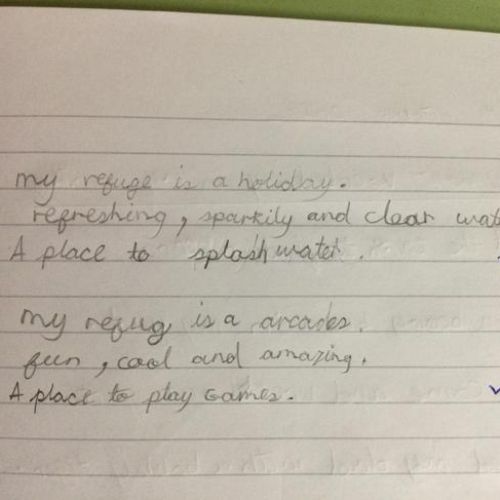 my refuge is a holiday.
refreshing, sparkily and clear wat
A place to splash water.
my refug is a arcades.
fun, cool and amazing.
A place to play Games.